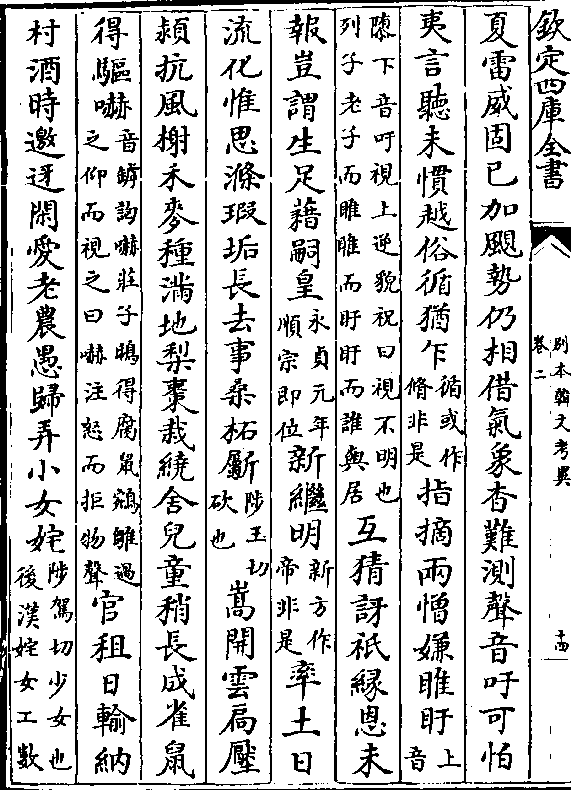 欽定四庫全書
別本韓文考異
卷二
十四
夏雷威固已加颶勢仍相借氣象杳難測聲音吁可怕
夷言聽未慣越俗循猶乍循或作脩非是指摘兩憎嫌睢盱上音
隳下音吁視上逆貌祝曰視不明也列子老子而睢睢而盱盱而誰與居互猜訝祇緣恩未
報豈謂生足藉嗣皇永貞元年順宗即位新繼明新方作帝非是率土日
流化惟思滌瑕垢長去事桑柘斸陟玉切砍也嵩開雲扃壓
潁抗風榭禾麥種滿地梨棗栽繞舍兒童稍長成雀鼠
得驅嚇音罅訽嚇莊子鴟得腐鼠鵷雛過之仰而視之曰嚇注怒而拒物聲官租日輸納
村酒時邀迓閑愛老農愚歸弄小女姹陟駕切少女也後漢姹女工數